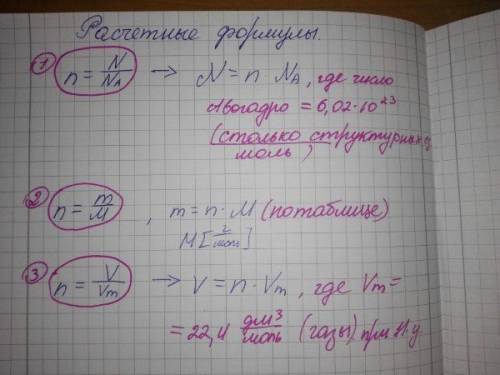 Расчетные формулы.
① n = N/NA → N = n · NA, где число
Авогадро = 6,02·10²³
(столько структурных ед
моль)
② n = m/M , m = n · M (по таблице)
M [г/моль]
③ n = V/Vm → V = n · Vm, где Vm =
= 22,4 дм³/моль (газы) при н.у.